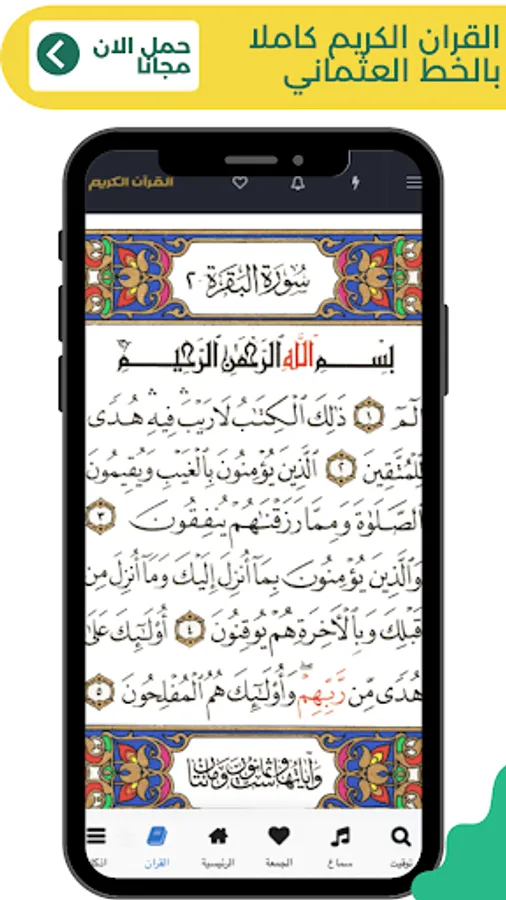 القران الكريم كاملا
بالخط العثماني
حمل الان
مجانا
القرآن الكريم
سُورَةُ البَقَرَةِ ٢
بِسْمِ اللَّهِ الرَّحْمَٰنِ الرَّحِيمِ
الٓمٓ ١ ذَٰلِكَ الْكِتَٰبُ لَا رَيْبَ ۛ فِيهِ ۛ هُدًى
لِّلْمُتَّقِينَ ٢ الَّذِينَ يُؤْمِنُونَ بِالْغَيْبِ وَيُقِيمُونَ
الصَّلَوٰةَ وَمِمَّا رَزَقْنَٰهُمْ يُنفِقُونَ ٣
وَالَّذِينَ يُؤْمِنُونَ بِمَآ أُنزِلَ إِلَيْكَ وَمَآ أُنزِلَ مِن
قَبْلِكَ وَبِالْءَاخِرَةِ هُمْ يُوقِنُونَ ٤ أُوْلَٰٓئِكَ عَلَىٰ
هُدًى مِّن رَّبِّهِمْ ۖ وَأُوْلَٰٓئِكَ هُمُ الْمُفْلِحُونَ ٥
وآياتها ست وثمانون ومائتان
توقيت
سماع
الجمعة
الرئيسية
القران